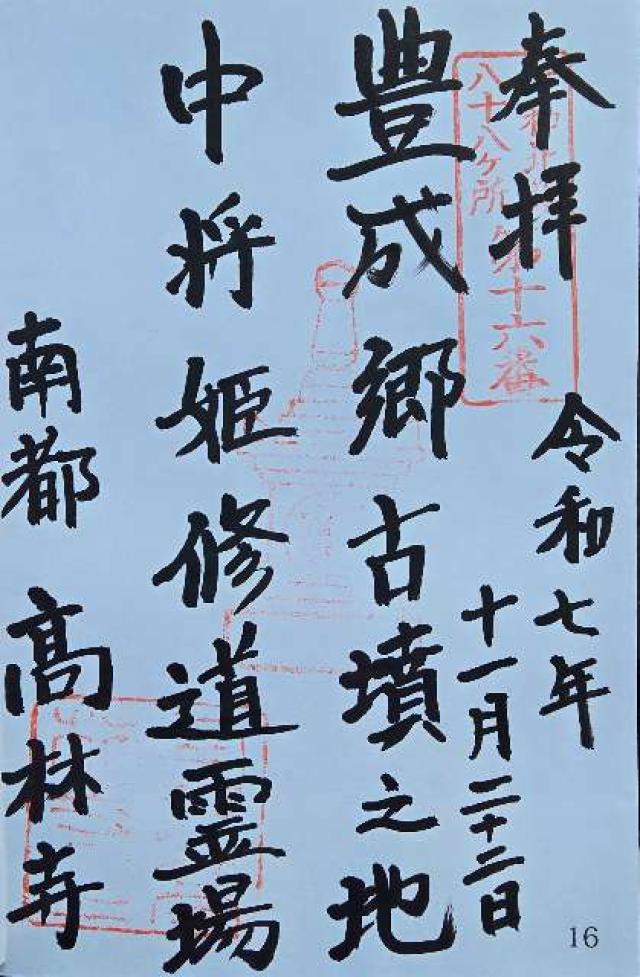 奉拝
令和七年
十一月二十二日
豊成郷古墳之地
中将姫修道霊場
南都 髙林寺
八十八ケ所 第十六番
16